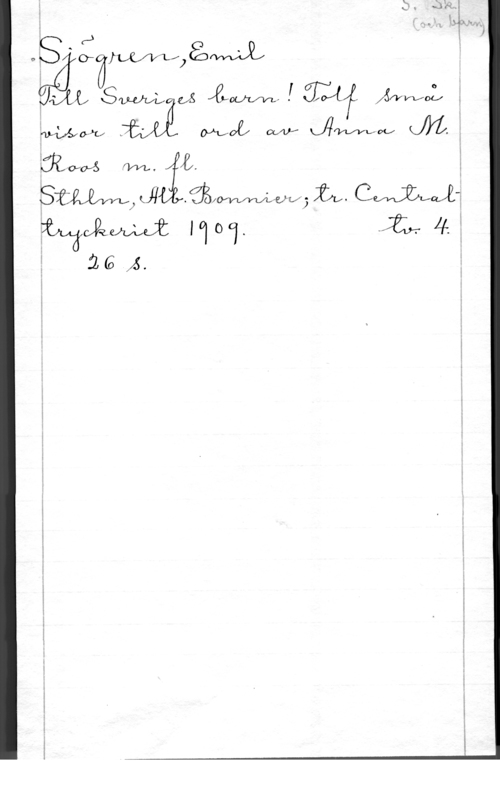 S. Sk.
(och barn)
Sjögren, Emil
Till Sveriges barn! Tolf små
visor till ord av Anna M.
Roos m. fl.
Sthlm, Alb. Bonnier; tr. Central-
tryckeriet 1909. tv. 4.
26 s.